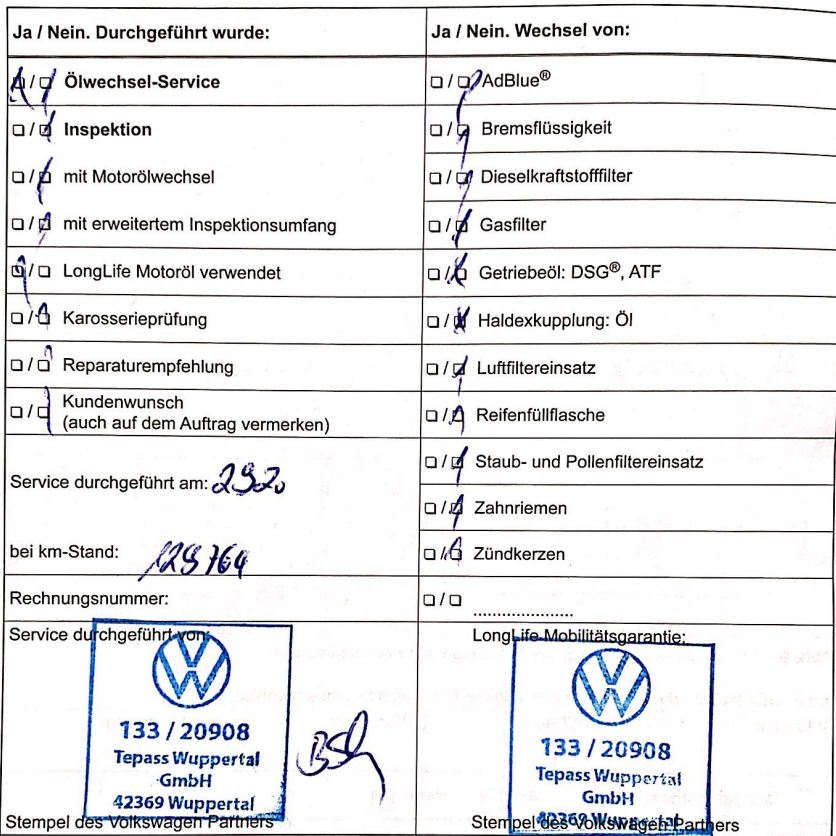 Ja / Nein. Durchgeführt wurde:
☐ / ☐ Ölwechsel-Service
☐ / ☐ Inspektion
☐ / ☐ mit Motorölwechsel
☐ / ☐ mit erweitertem Inspektionsumfang
☐ / ☐ LongLife Motoröl verwendet
☐ / ☐ Karosserieprüfung
☐ / ☐ Reparaturempfehlung
☐ / ☐ Kundenwunsch
(auch auf dem Auftrag vermerken)
Service durchgeführt am:
bei km-Stand: 128764
Rechnungsnummer:
Service durchgeführt von:
133 / 20908
Tepass Wuppertal
GmbH
42369 Wuppertal
Stempel des Volkswagen Partners
Ja / Nein. Wechsel von:
☐ / ☐ AdBlue®
☐ / ☐ Bremsflüssigkeit
☐ / ☐ Dieselkraftstofffilter
☐ / ☐ Gasfilter
☐ / ☐ Getriebeöl: DSG®, ATF
☐ / ☐ Haldexkupplung: Öl
☐ / ☐ Luftfiltereinsatz
☐ / ☐ Reifenfüllflasche
☐ / ☐ Staub- und Pollenfiltereinsatz
☐ / ☐ Zahnriemen
☐ / ☐ Zündkerzen
☐ / ☐ ....................
LongLife Mobilitätsgarantie:
133 / 20908
Tepass Wuppertal
GmbH
42369 Wuppertal
Stempel des Volkswagen Partners